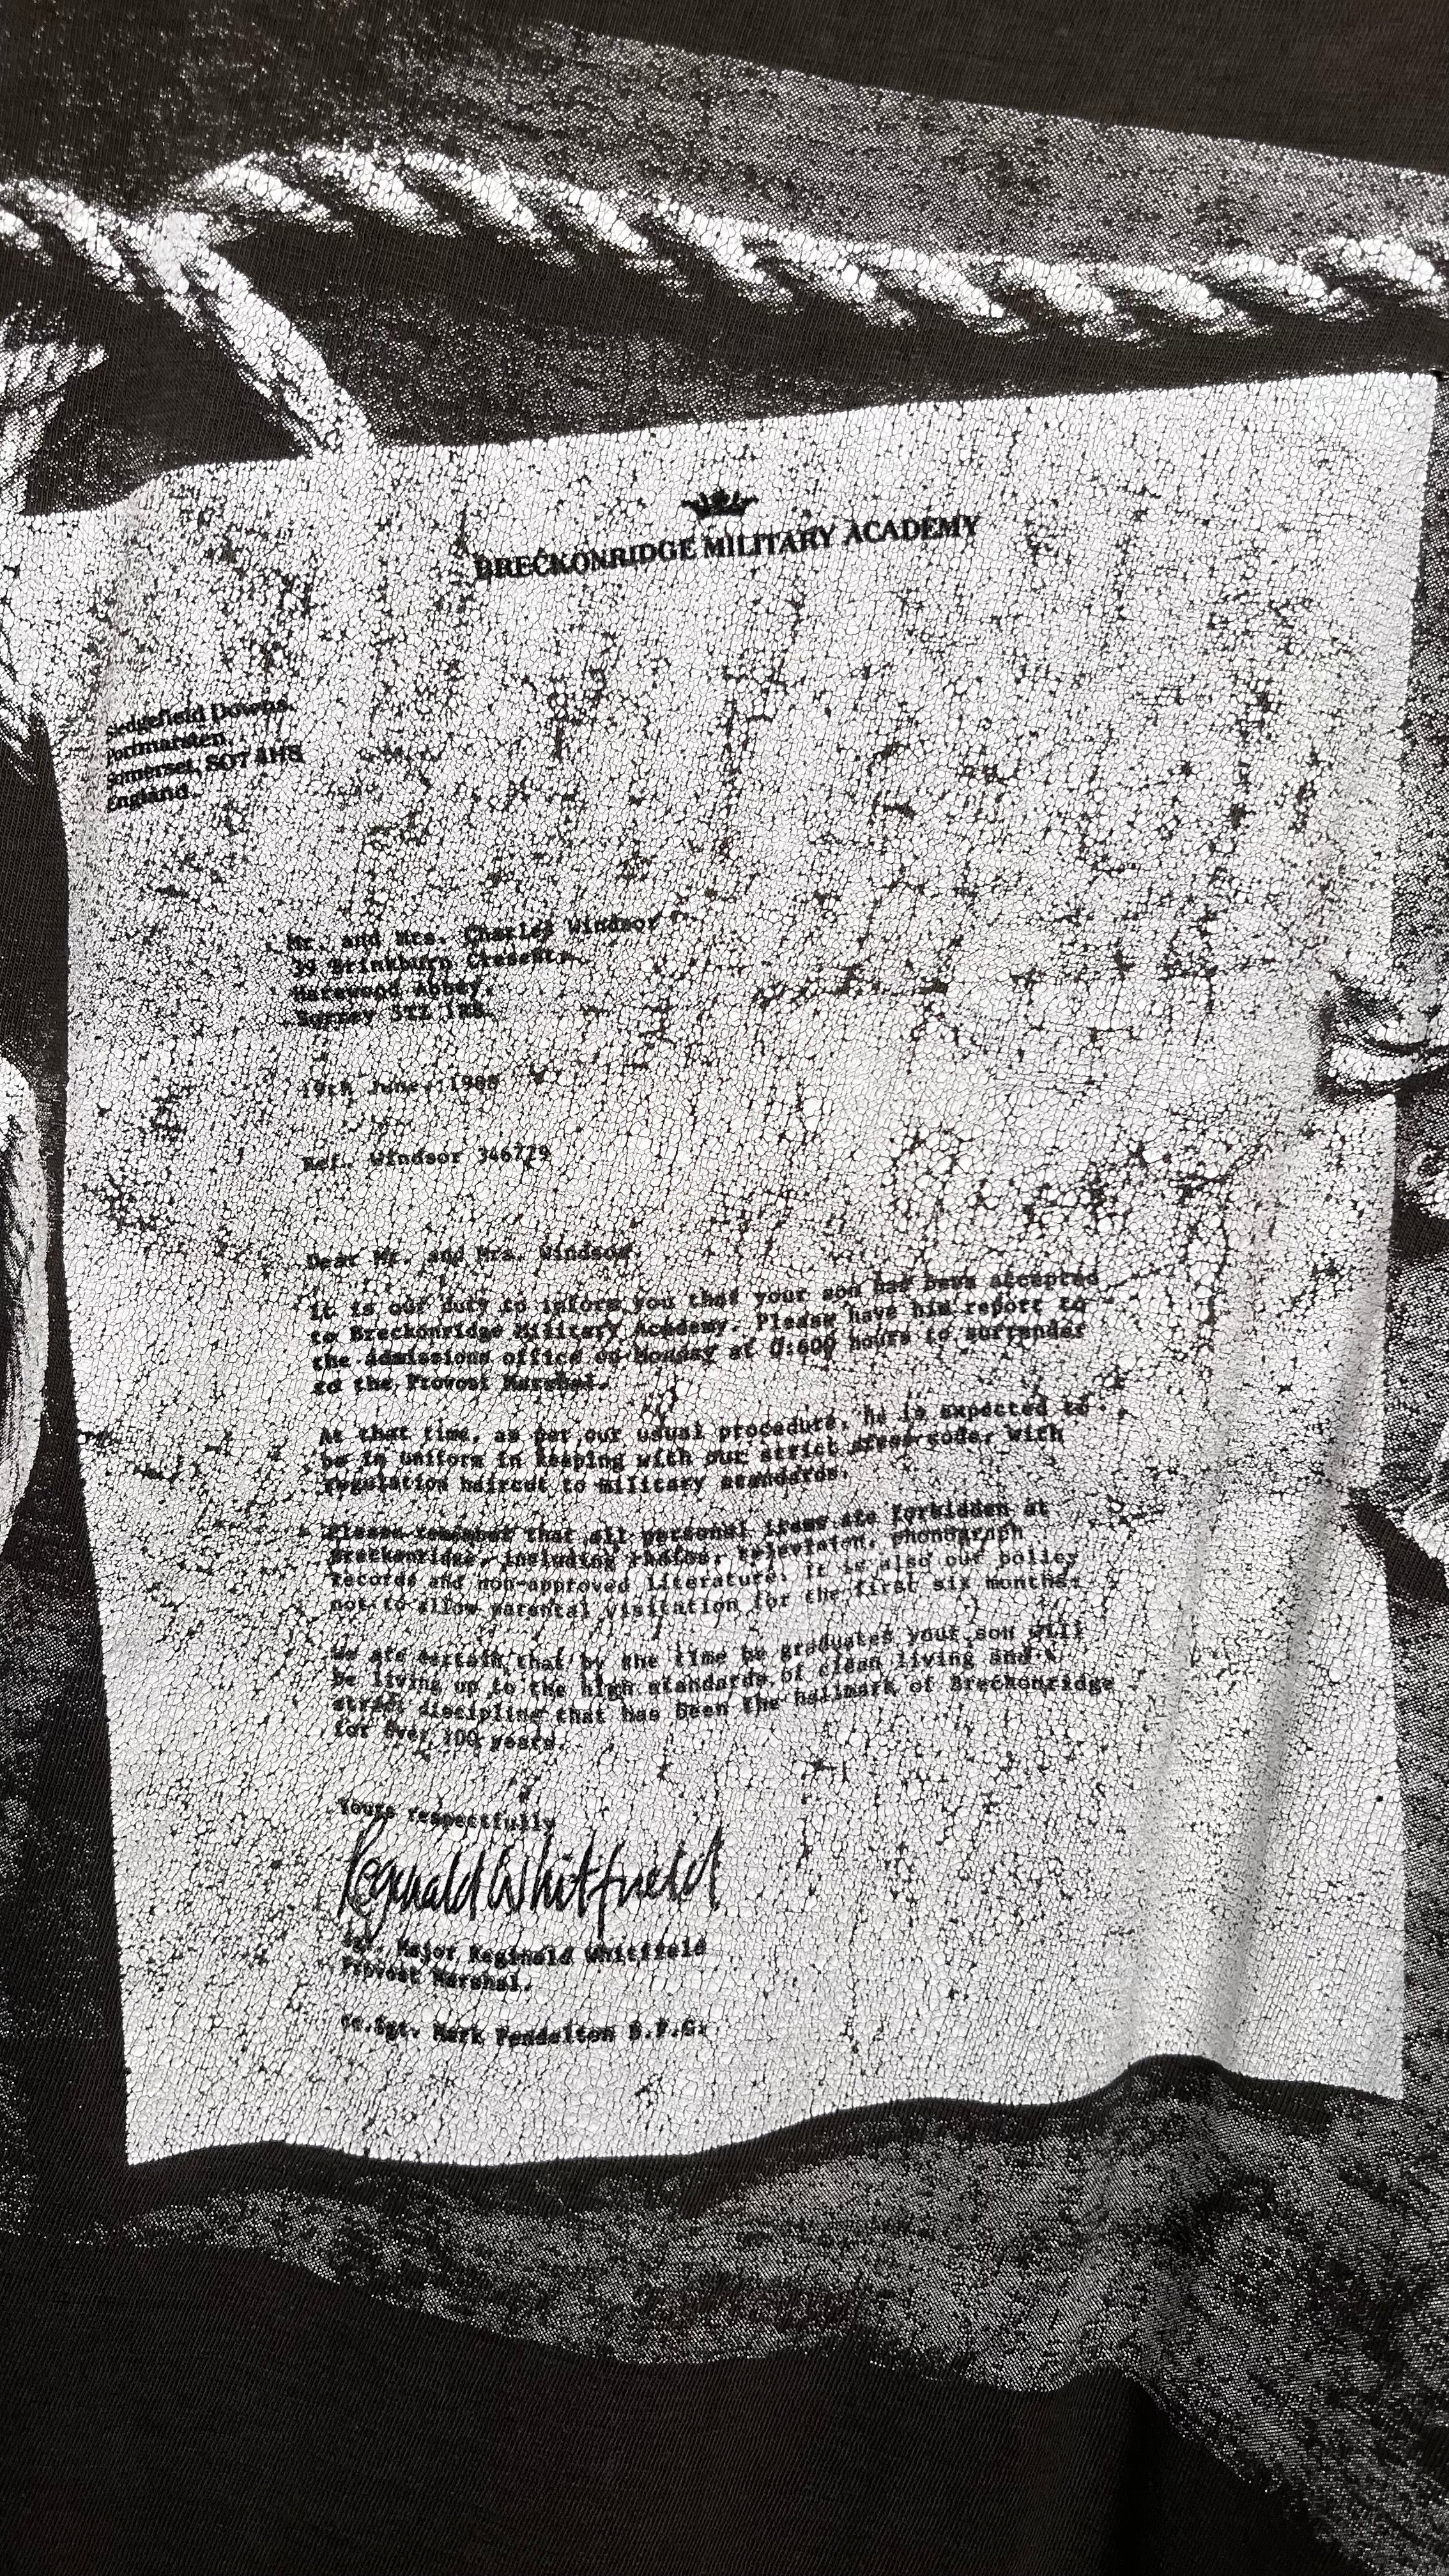 BRECKONRIDGE MILITARY ACADEMY
Sledgefield Downs,
Portmarsten,
Somerset, SO7 4HS
England.
Mr. and Mrs. Charles Windsor
39 Brinkburn Cresent,
Harewood Abbey,
Surrey
19th June, 1988
Ref. Windsor 346779
Dear Mr. and Mrs. Windsor
It is our duty to inform you that your son has been accepted
to Breckonridge Military Academy. Please have him report to
the admissions office on Monday at 0:600 hours to surrender
to the Provost Marshal.
At that time, as per our usual procedure, he is expected to
be in uniform in keeping with our strict dress code, with
regulation haircut to military standards.
Please remember that all personal items are forbidden at
Breckonridge, including radios, television, phonograph
records and non-approved literature. It is also our policy
not to allow parental visitation for the first six months.
We are certain that by the time he graduates your son will
be living up to the high standards of clean living and
strict discipline that has been the hallmark of Breckonridge
for over 100 years.
Yours respectfully
Reginald Whitfield
Sgt. Major Reginald Whitfield
Provost Marshal.
cc.Sgt. Mark Pendelton